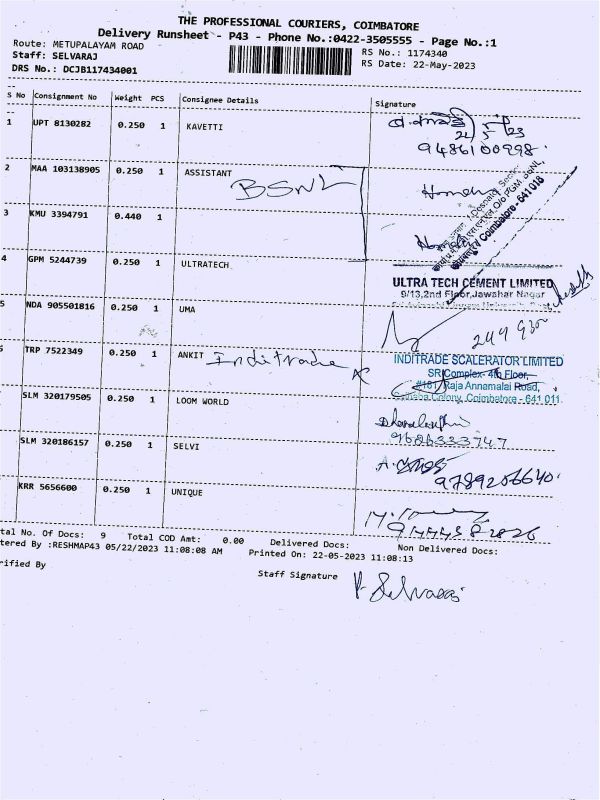 THE PROFESSIONAL COURIERS, COIMBATORE
Delivery Runsheet - P43 - Phone No.:0422-3505555 - Page No.:1
Route: METUPALAYAM ROAD RS No.: 1174340
Staff: SELVARAJ RS Date: 22-May-2023
DRS No.: DCJB117434001
S No Consignment No Weight PCS Consignee Details Signature
1 UPT 8130282 0.250 1 KAVETTI
9486100998
2 MAA 103138905 0.250 1 ASSISTANT BSNL
3 KMU 3394791 0.440 1
Coimbatore - 641 018
4 GPM 5244739 0.250 1 ULTRATECH
ULTRA TECH CEMENT LIMITED
9/13,2nd Floor,Jawahar Nagar
5 NDA 905501816 0.250 1 UMA
TRP 7522349 0.250 1 ANKIT Inditrade
INDITRADE SCALERATOR LIMITED
SRI Complex- 4th Floor,
#181, Raja Annamalai Road,
Colony, Coimbatore - 641 011.
SLM 320179505 0.250 1 LOOM WORLD
9686333747
SLM 320186157 0.250 1 SELVI
9789206640
KRR 5656600 0.250 1 UNIQUE
tal No. Of Docs: 9 Total COD Amt: 0.00 Delivered Docs: Non Delivered Docs:
tered By :RESHMAP43 05/22/2023 11:08:08 AM Printed On: 22-05-2023 11:08:13
rified By
Staff Signature P. Selvaraj